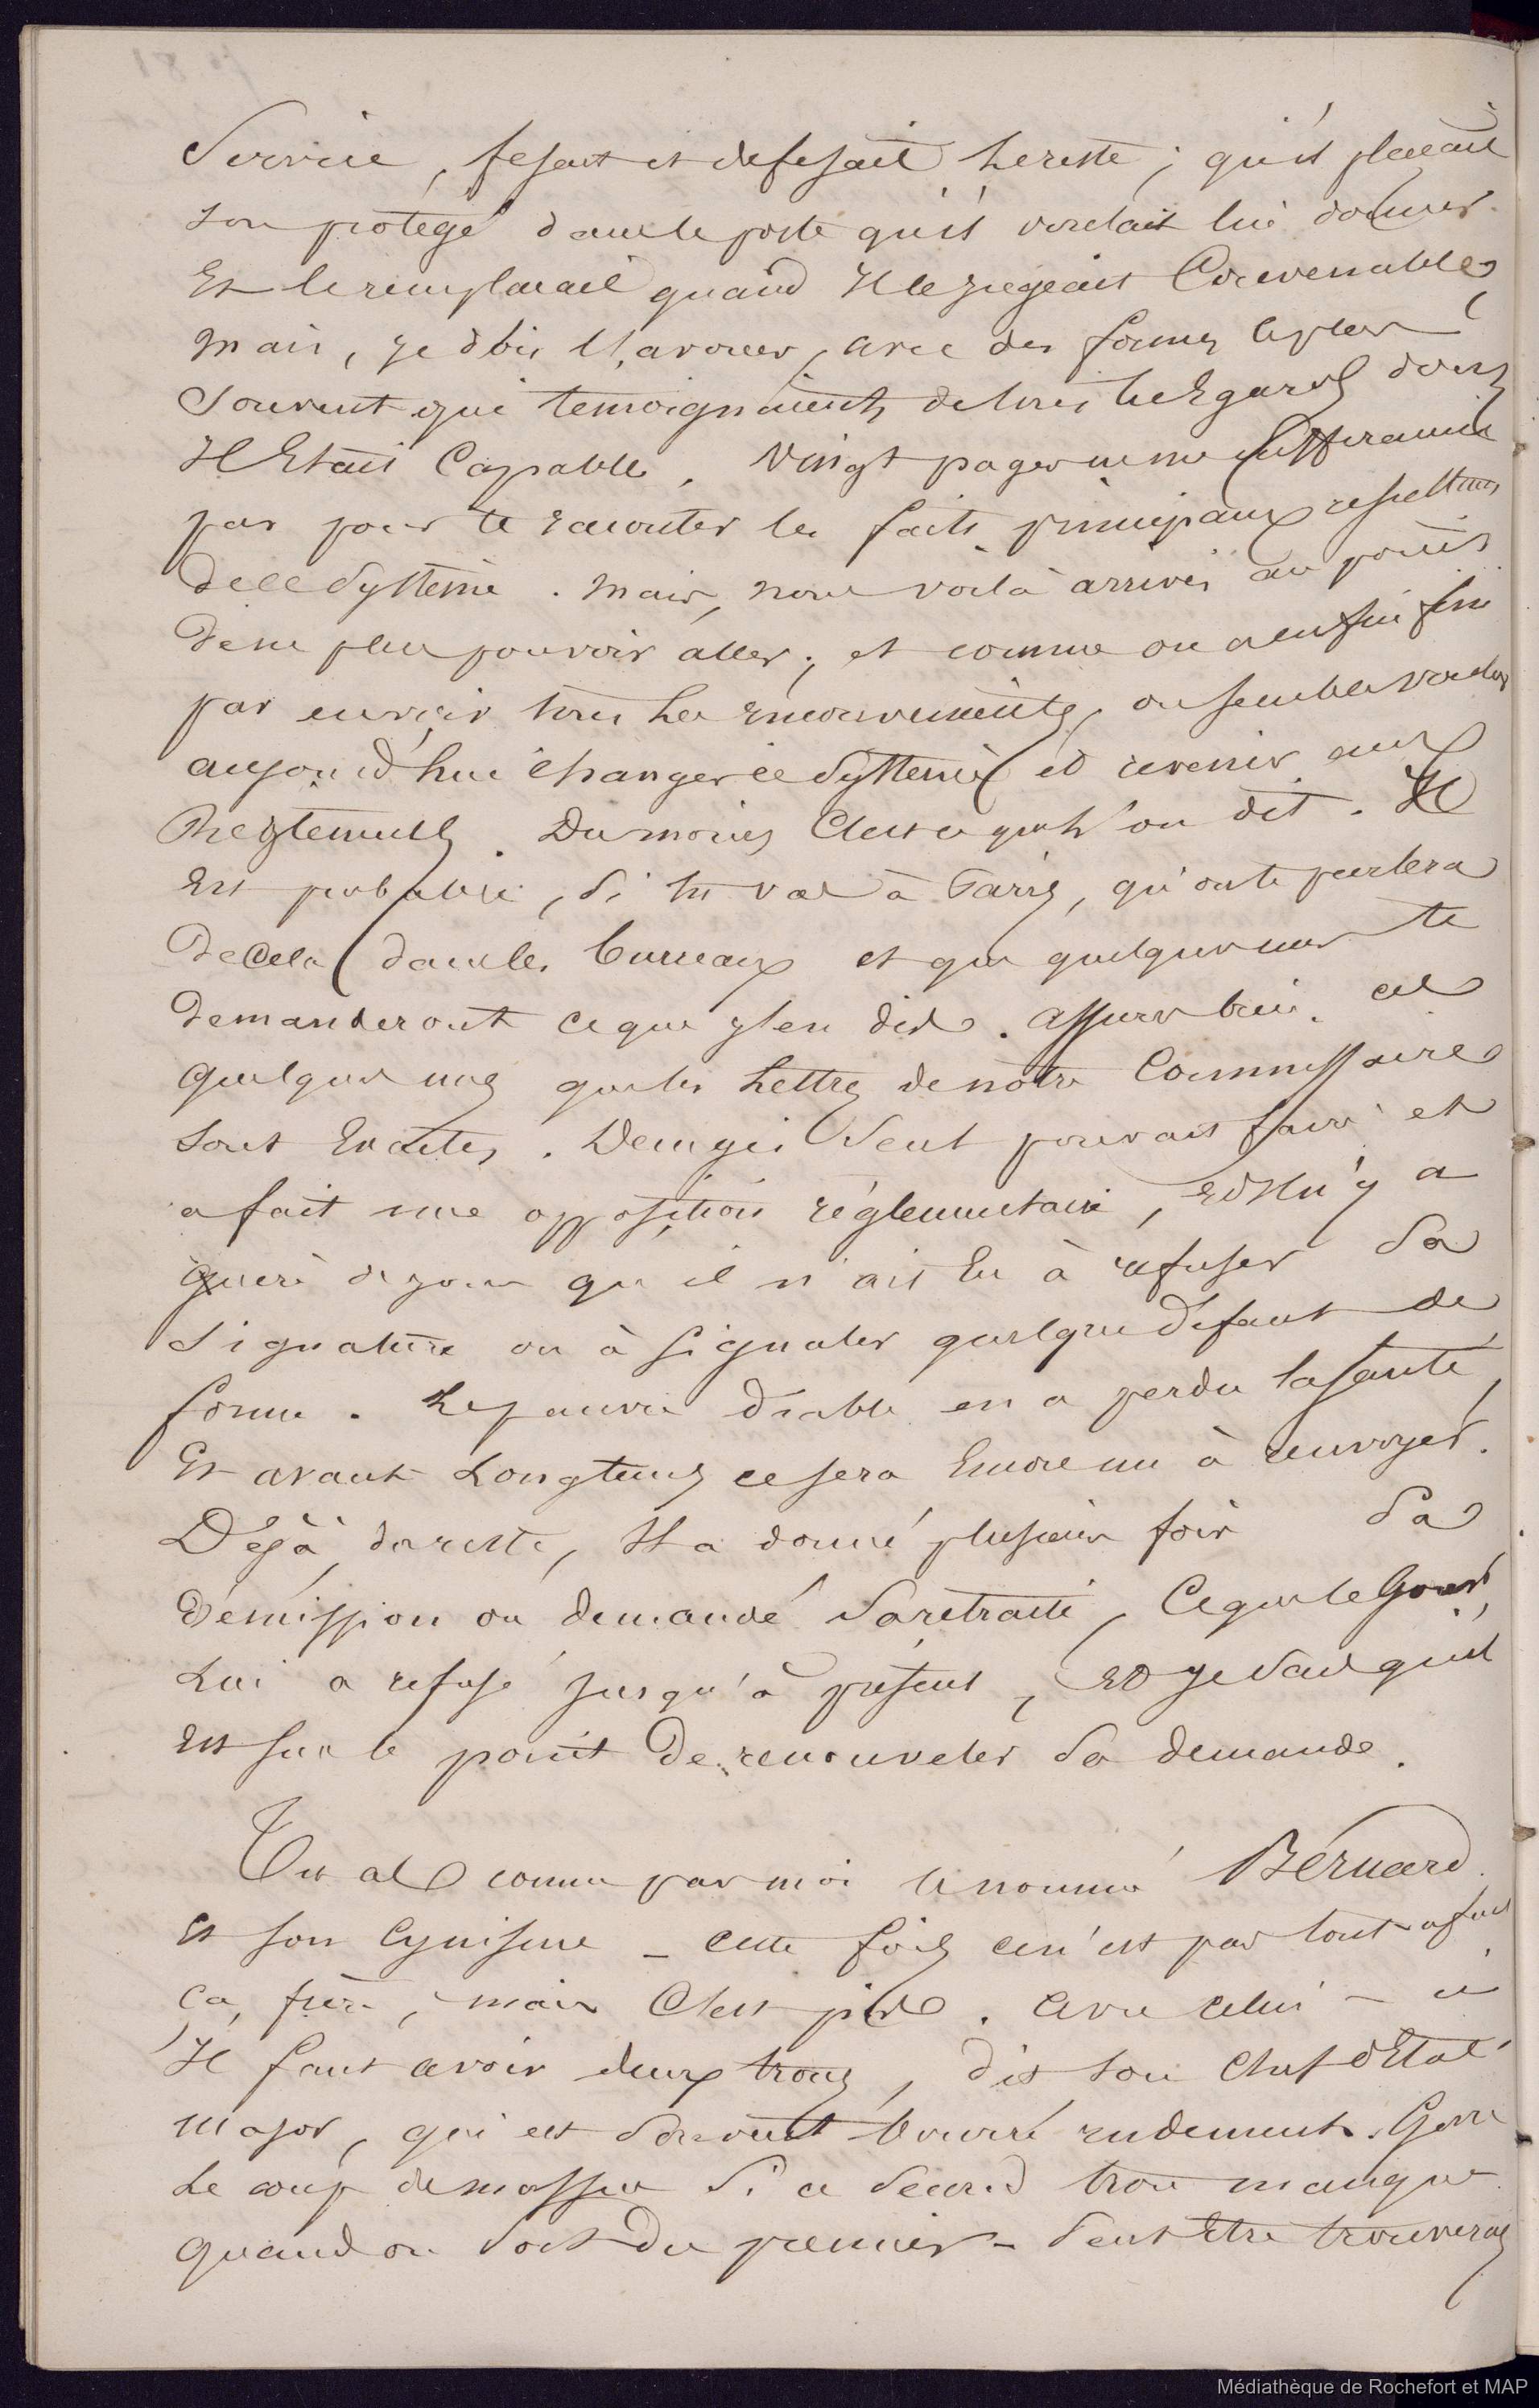 Service, fesait et defesait le reste ; qu'il placait
son protégé dans le poste qu'il voulait lui donner
Et le remplacait quand Il le jugeait Convenable,
mais, je dois l'avouer, avec des formes le plus
Souvent qui temoignaient de tous les Egards dont
Il Etait Capable. Vingt pages ne me suffiraient
pas pour te raconter les faits principaux
de ce Systême. Mais, nous voilà arrivés au point
de ne plus pouvoir aller ; et comme on a enfin fini
par en voir tous les inconvenients, on semble vouloir
aujourd'hui changer ce Systême et revenir aux
Reglements. Du moins C'est ce qu'on dit. Il
Est probable, Si tu vas à Paris, qu'on te parlera
de Cela dans les bureaux et que quelques uns te
demanderont ce que j'en dis. Assure bien à ces
quelques uns que les Lettres de nôtre Commissaire
sont Exactes. Seul pouvait faire et
a fait une opposition réglementaire, Et Il n'y a
guere de jour qu'il n'ait Eu à refuser Sa
Signature ou à Signaler quelque défaut de
forme. Le pauvre diable en a perdu la Santé,
Et avant Longtems ce sera Encore un à renvoyer.
Déjà, du reste, Il a donné plusieurs fois Sa
Démission ou demandé Sa retraite, Ce que le Gouvr
Lui a refusé jusqu'à présent, Et je Sais qu'il
Est sur le point de renouveler Sa demande.
Tu as connu par moi le nommé Bernard
Et son Cynisme - Cette fois ce n'est pas tout a fait
Ca, frère, mais C'est pire. Avec celui-ci
Il faut avoir deux trous, dit son Chef d'Etat
major, qui est Souvent bourré rudement. Gare
Le coup de massue Si ce Second trou manque
quand on Sort du premier - Peut Etre trouveras